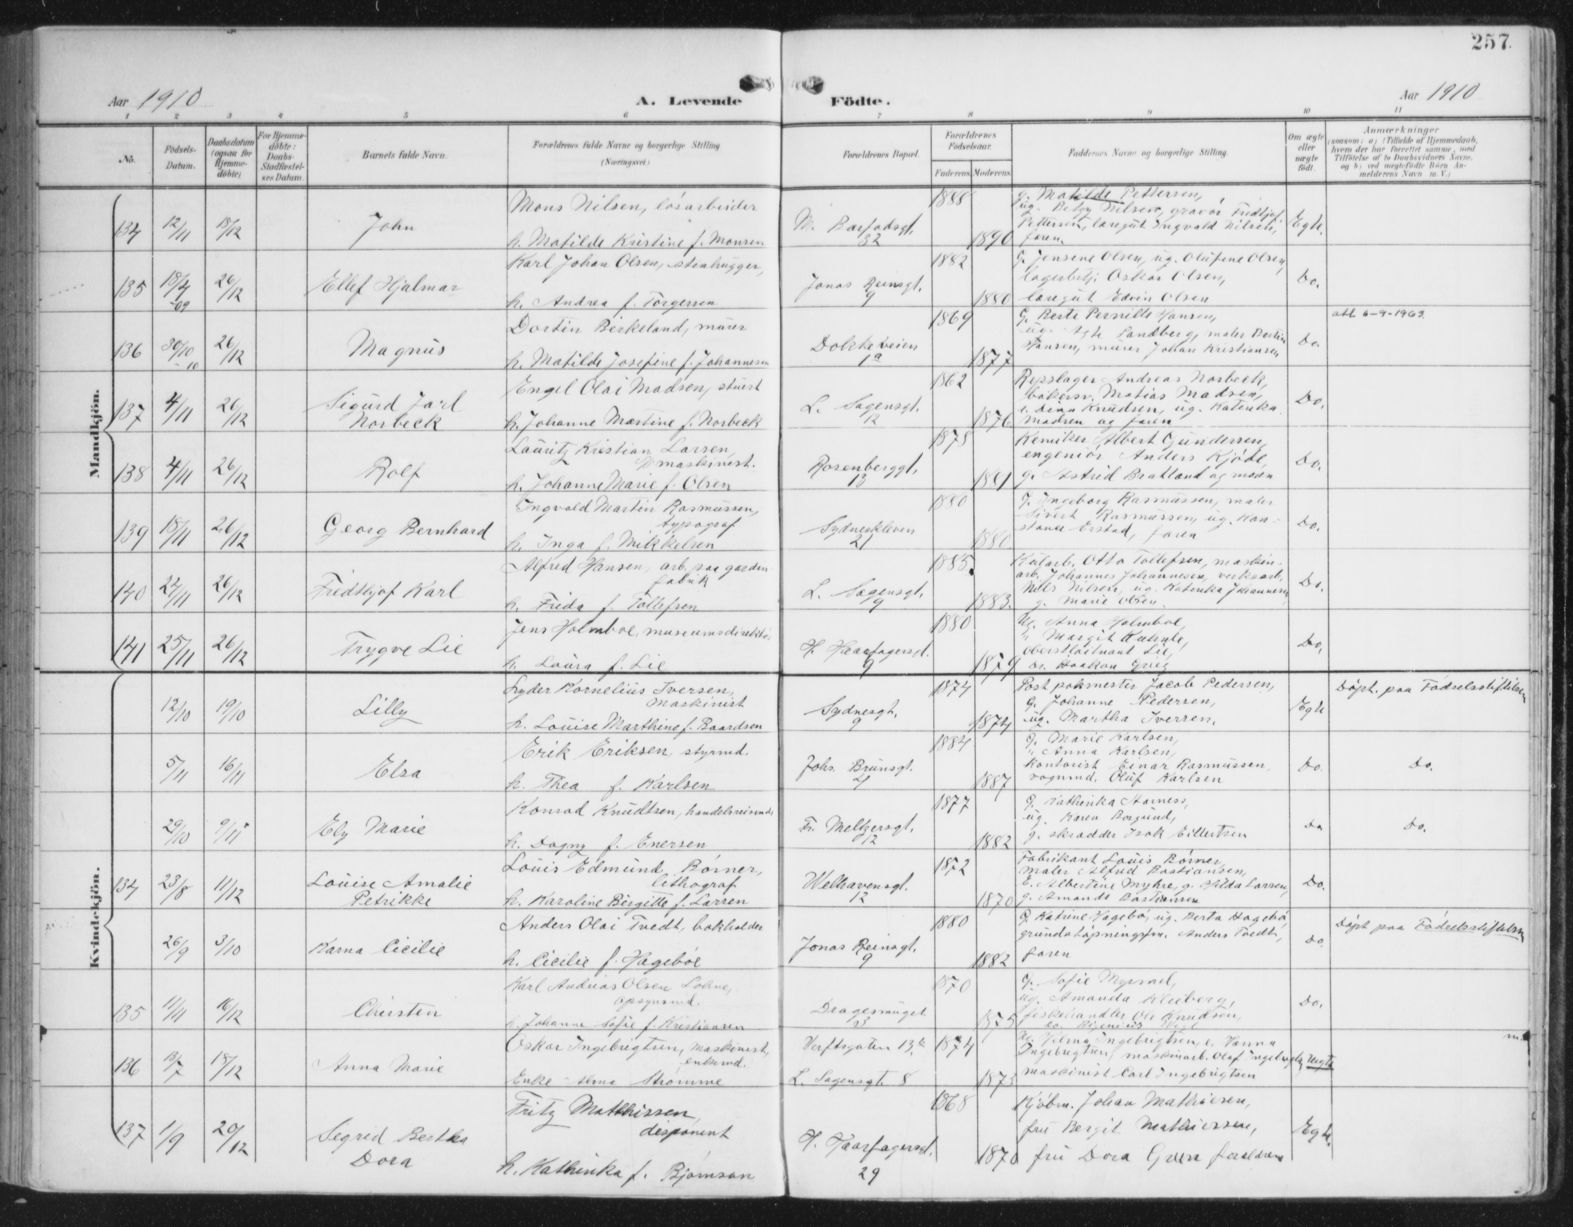 257
Aar 1910
A. Levende Födte.
Aar 1910
1 2 3 4 5 6 7 8 9 10 11
No.
Födsels-Datum.
Daabsdatum (ogsaa for Hjemmedöbte)
For Hjemmedöbte: Daabs-Stadfæstelses Datum.
Barnets fulde Navn.
Forældrenes fulde Navne og borgerlige Stilling (Næringsvei)
Forældrenes Bopæl.
Forældrenes Födselsaar.
Faderens. Moderens.
Faddernes Navne og borgerlige Stilling.
Om ægte eller uægte födt.
Anmærkninger
Mandkjön.
134 12/11 18/12 John
Mons Nilsen, lösarbeider
h. Matilde Kristine f. Monsen
32
1888 1890
g. Matilde Pettersen,
ug. Petra Nilsen, gravör Fredtjof
Pettersen, læregut Ingvald Nilsen,
faren
Egte.
135 18/4 -09 26/12 Ellef Hjalmar
Karl Johan Olsen, stenhugger,
h. Andrea f. Torgersen
Jonas Reinsgt.
9
1882 1880
g. Jensine Olsen, ug. Olufine Olsen,
lagerbetj. Oskar Olsen,
læregut Edvin Olsen
Do.
136 30/10 26/12 Magnus
Dortin Birkeland, murer
h. Matilde Josefine f. Johannesen
1a
1869 1877
g. Berte Pernille Hansen,
Sandberg, maler
Hansen, murer Johan Kristiansen
Do.
att 6-9-1963
137 4/11 26/12 Sigurd Jarl
Norbeck
Engel Olai Madsen, stuert
h. Johanne Martine f. Norbeck
L. Sagensgt.
12
1862 1876
Repslager Andreas Norbeck,
bokersv. Matias Madsen,
e. Dena Knudsen, ug. Katinka
Madsen og faren
Do.
138 4/11 26/12 Rolf
Lauritz Kristian Larsen,
maskinist.
h. Johanne Marie f. Olsen
Rosenberggt.
13
1878 1881
Kemiker Albert Gundersen,
engeniör Anders Kjöde,
g. Astrid Bratland og moden
Do.
139 18/11 26/12 Georg Bernhard
Ingvald Martin Rasmussen,
typograf
h. Inga f. Mikkelsen
Sydneskleven
21
1880 1880
g. Ingeborg Rasmussen, maler
Sivert Rasmussen, ug. Kon-
stance Erstad, faren
Do.
140 22/11 26/12 Fredthjof Karl
Alfred Hansen, arb. paa garden
fabrik
h. Frida f. Tollefsen
L. Sagensgt.
9
1885. 1883.
Kularb. Otto Tollefsen, maskin-
arb. Johannes Johannesen, verksarb.
Nils Nilsen, ug. Katinka Johannesen,
g. Marie Olsen
Do.
141 25/11 26/12 Trygve Lie
Jens Holmboe, museumsdirektör
h. Laura f. Lie
H. Haarfagersgt.
9
1880 1879
ug. Anna Holmboe,
" Margit
oberstløitnant Lie,
dr. Haakon Grieg
Do.
Kvindekjön.
12/10 19/10 Lilly
Lyder Kornelius Iversen,
maskinist
h. Louise Marthine f. Baardsen
Sydnesgt.
9
1874 1874
Postpakmester Jacob Pedersen,
g. Johanne Pedersen,
ug. Martha Iversen.
Egte
Döpt. paa Födselsstiftelsen
5/11 16/11 Elsa
Erik Eriksen styrmd.
h. Thea f. Karlsen
Johs. Brunsgt.
21
1884 1887
g. Marie Karlsen,
" Anna Karlsen,
kontorist Einar Rasmussen,
vognmd. Oluf Karlsen
Do.
Do.
29/10 9/11 Ely Marie
Konrad Knudtsen, handelsreisend.
h. Dagny f. Enersen
Fr. Meltzersgt.
12
1877 1882
g. Kathinka Aarness,
ug. Karen Borgund,
g. skrædder Isak Eilertsen
Do
Do.
134 23/8 11/12 Louise Amalie
Petrikke
Louis Edmund Börner,
lithograf
h. Karoline Birgitte f. Larsen
Welhavensgt.
12
1872 1870
Fabrikant Louis Börner,
maler Alfred Bastiansen,
E. Albertine Myhre, g. Hilda Larsen,
g. Amanda Bastiansen
Do.
26/9 3/10 Karna Cicilie
Anders Olai Tvedt, bokholder
h. Cicilie f. Hagebøe
Jonas Reinsgt.
9
1880 1882
g. Katrine Hagebö, ug. Berta Hagebö,
Anders Tvedt,
faren
Do.
Döpt paa Födselsstiftelsen
135 11/11 18/12 Christen
Karl Andreas Olsen Lohne,
opsynsmd.
h. Johanne Sofie f. Kristiansen
Dragesmuget
23
1870 1875
g. Sofie Myrsæl,
ug. Amanda Kleeberg,
fiskehandler Ole Knudsen,
Do.
136 3/7 18/12 Anna Marie
Oskar Ingebrigtsen, maskinist,
enkemd.
Enke Anna Strömme
Verftsgaten 13c
L. Sagensgt. 8
1874 1875
ug. Vilma Ingebrigtsen, e. Hanna
Ingebrigtsen, maskinarb. Olaf Ingebrigtsen
maskinist Carl Ingebrigtsen
Uegte
137 1/9 20/12 Segrid Bertha
Dora
Fritz Matthiessen,
disponent
h. Kathinka f. Bjørnson
H. Haarfagersgt.
29
1868 1870
Kjöbm. Johan Mathiesen,
fru Bergit Mathiessen,
fru Dora Gran foreldrene
Egte.